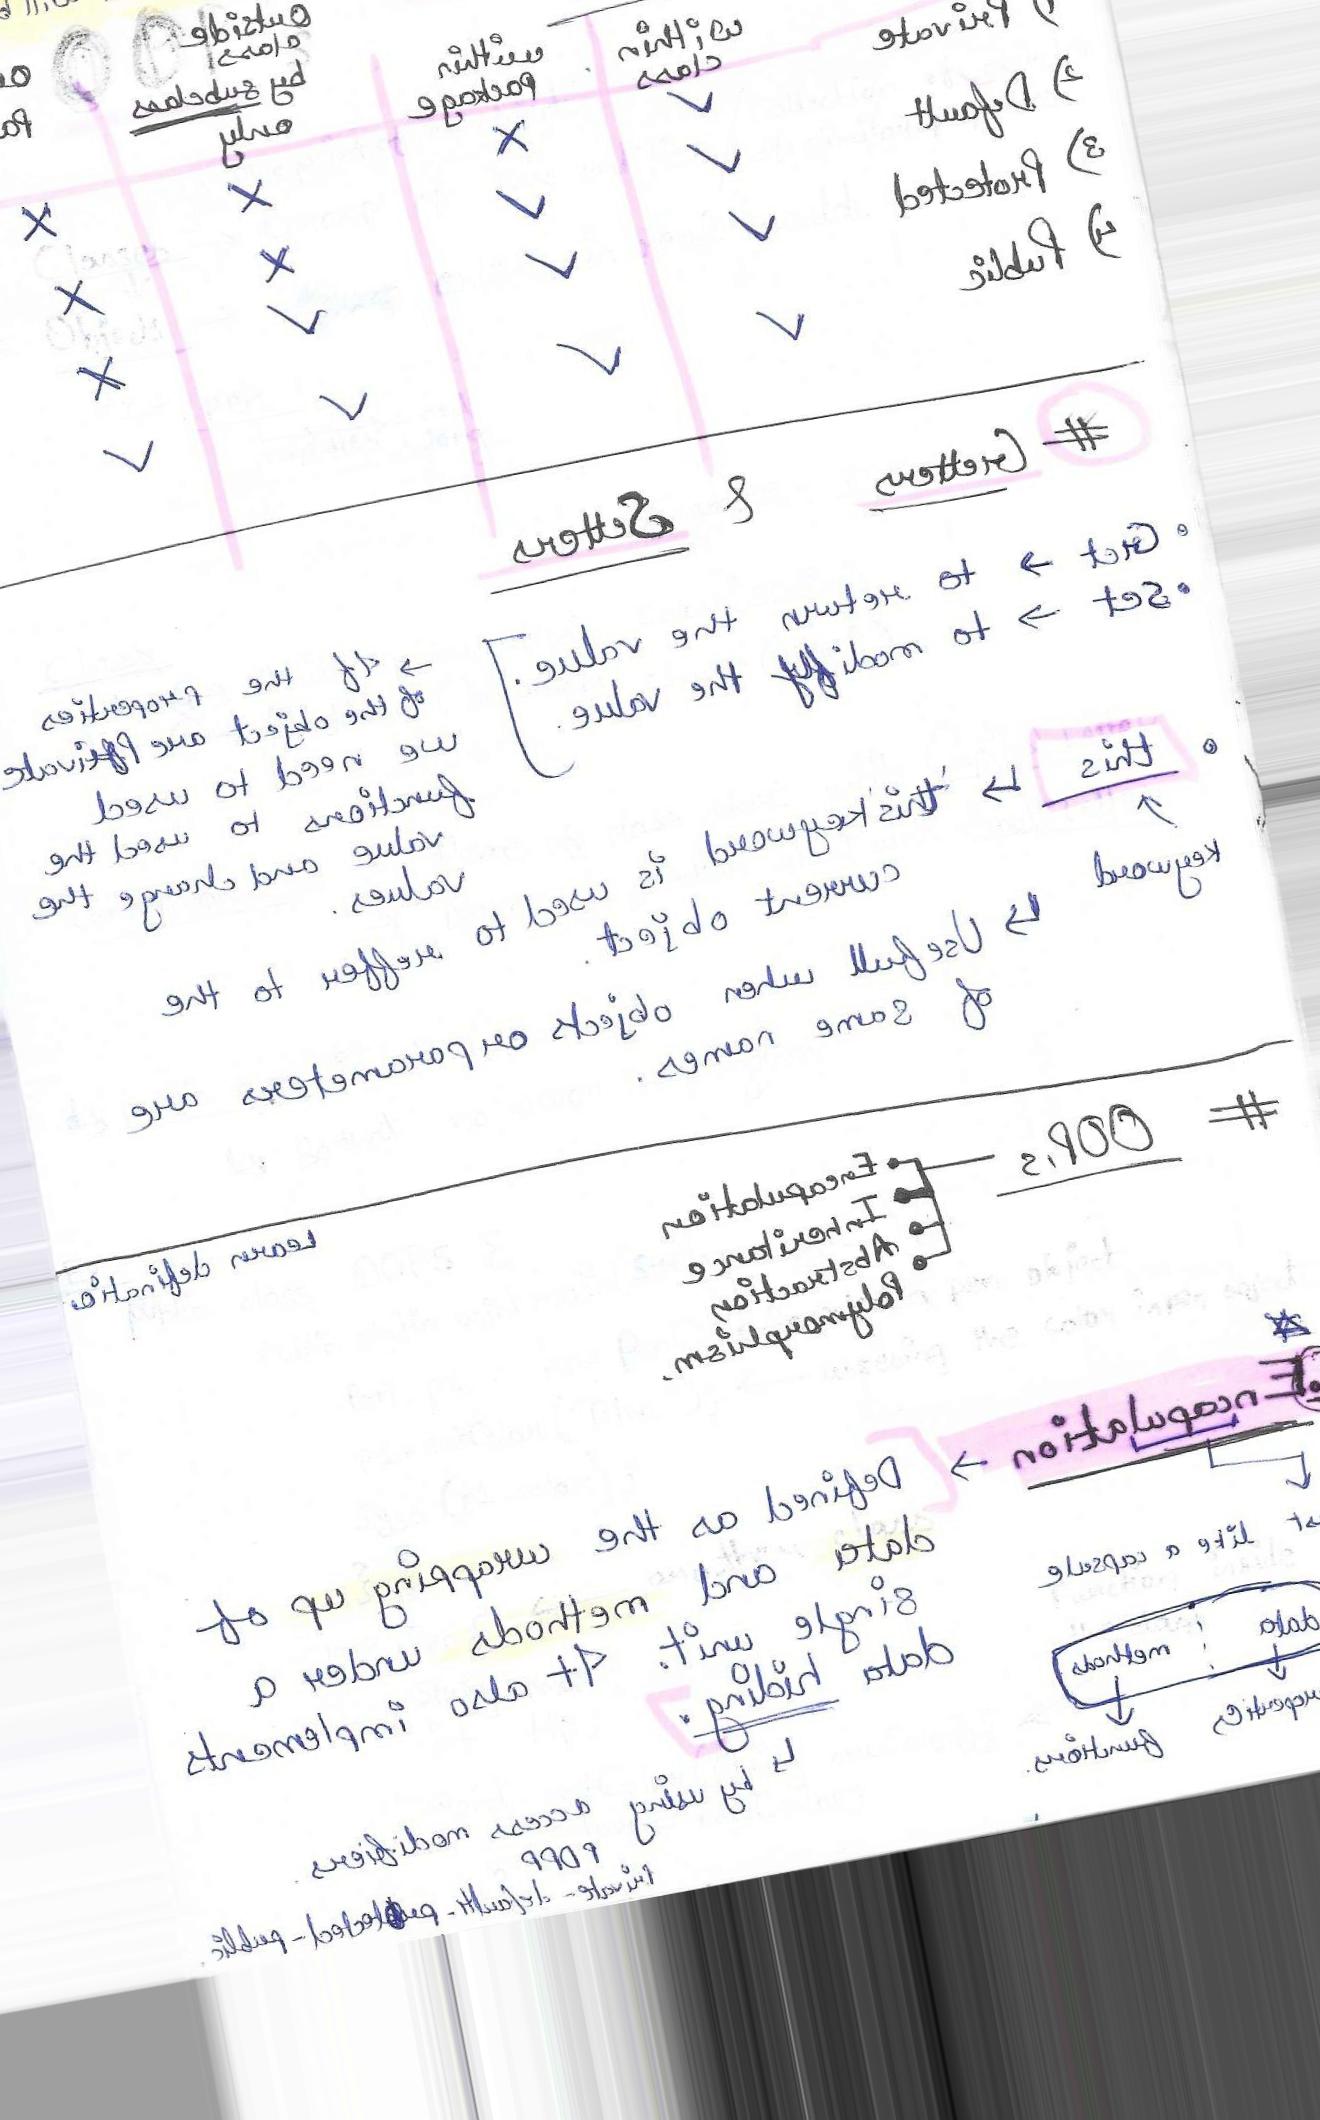 within class
within package
outside class by subclass only
1) Private ✓ × × ×
2) Default ✓ ✓ × ×
3) Protected ✓ ✓ ✓ ×
4) Public ✓ ✓ ✓ ✓
# Getters & Setters
• Get → to return the value.
• Set → to modify the value.
→ If the properties
of the object are private
we need to used
functions to used the
value and change the
values.
• this ↳ this keyword is used to reffer to the
keyword
current object.
↳ Usefull when objects or parameters are
of same names.
# OOP's
• Encapulation
• Inheritance
• Abstraction
• Polymorphism.
Learn defination
Encapulation → Defined as the wrapping up of
data and methods under a
single unit. It also implements
data hiding.
like a capsule
data | methods
functions.
↳ by using access modifiers.
PDPP
Private-default-protected-public.